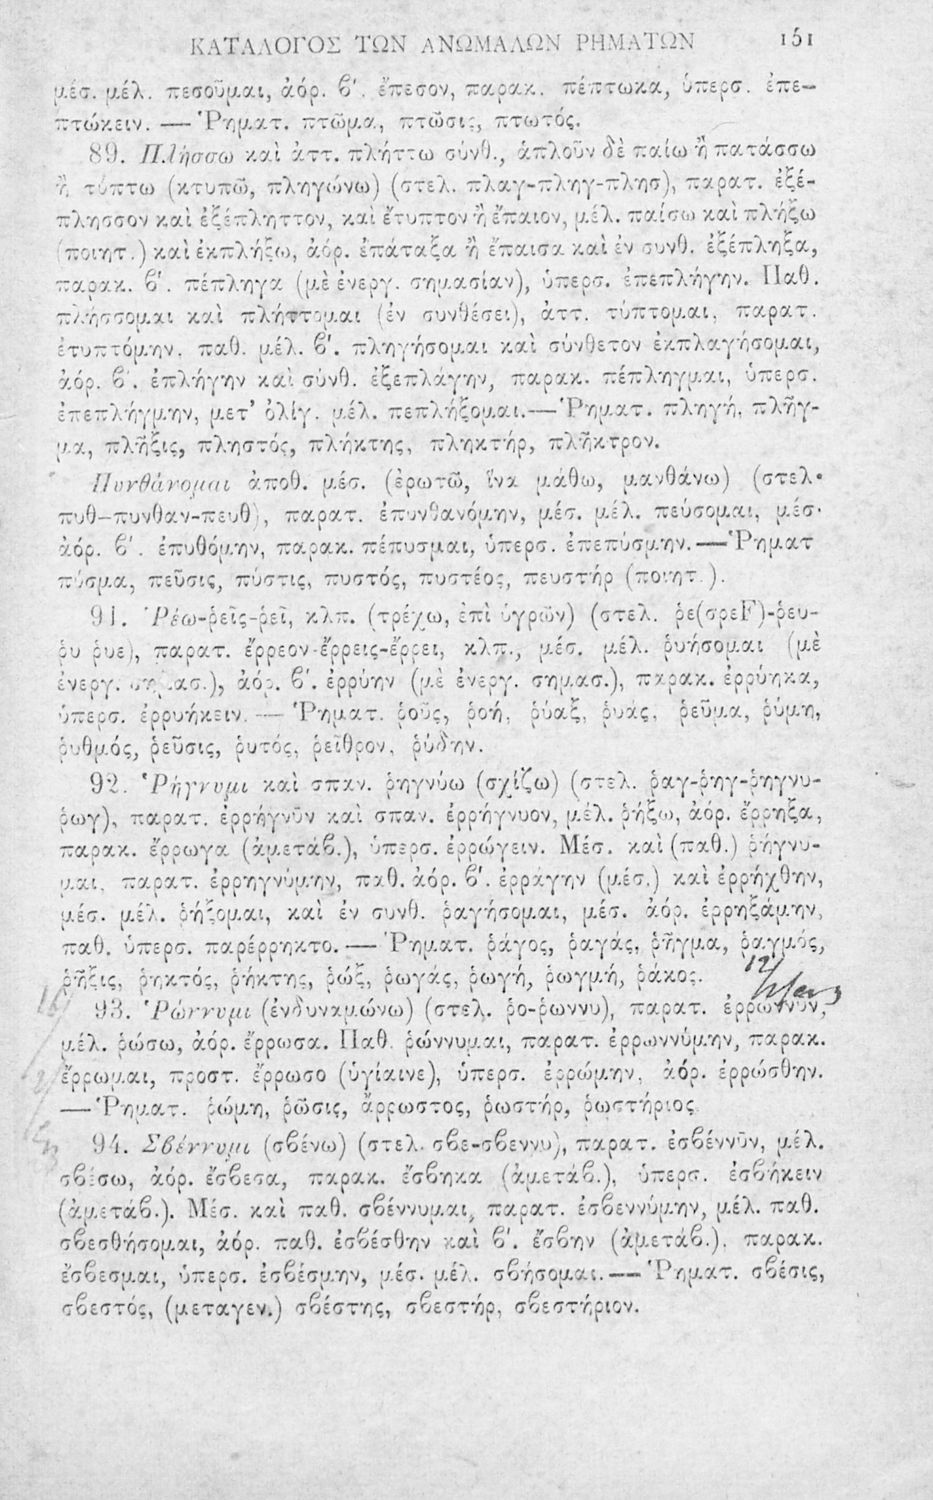 ΚΑΤΑΛΟΓΟΣ ΤΩΝ ΑΝΩΜΑΛΩΝ ΡΗΜΑΤΩΝ 151
μέσ. μέλ. πεσοῦμαι, ἀόρ. β΄. ἔπεσον, παρακ. πέπτωκα, ὑπερσ. ἐπε-
πτώκειν. — Ῥηματ. πτῶμα, πτῶσις, πτωτός.
89. Πλήσσω καὶ ἀττ. πλήττω σύνθ., ἁπλοῦν δὲ παίω ἢ πατάσσω
ἢ τύπτω (κτυπῶ, πληγώνω) (στελ. πλαγ-πληγ-πλησ), παρατ. ἐξέ-
πλησσον καὶ ἐξέπληττον, καὶ ἔτυπτον ἢ ἔπαιον, μέλ. παίσω καὶ πλήξω
(ποιητ.) καὶ ἐκπλήξω, ἀόρ. ἐπάταξα ἢ ἔπαισα καὶ ἐν συνθ. ἐξέπληξα,
παρακ. β΄. πέπληγα (μὲ ἐνεργ. σημασίαν), ὑπερσ. ἐπεπλήγην. Παθ.
πλήσσομαι καὶ πλήττομαι (ἐν συνθέσει), ἀττ. τύπτομαι, παρατ.
ἐτυπτόμην. παθ. μέλ. β΄. πληγήσομαι καὶ σύνθετον ἐκπλαγήσομαι,
ἀόρ. β΄. ἐπλήγην καὶ σύνθ. ἐξεπλάγην, παρακ. πέπληγμαι, ὑπερσ.
ἐπεπλήγμην, μετ' ὀλίγ. μέλ. πεπλήξομαι.—Ῥηματ. πληγή, πλῆγ-
μα, πλῆξις, πληστός, πλήκτης, πληκτήρ, πλῆκτρον.
Πυνθάνομαι ἀποθ. μέσ. (ἐρωτῶ, ἵνα μάθω, μανθάνω) (στελ.
πυθ-πυνθαν-πευθ), παρατ. ἐπυνθανόμην, μέσ. μέλ. πεύσομαι, μέσ.
ἀόρ. β΄. ἐπυθόμην, παρακ. πέπυσμαι, ὑπερσ. ἐπεπύσμην.—Ῥηματ
πύσμα, πεῦσις, πύστις, πυστός, πυστέος, πευστήρ (ποιητ.).
91. Ῥέω-ῥεῖς-ῥεῖ, κλπ. (τρέχω, ἐπὶ ὑγρῶν) (στελ. ῥε(σρεF)-ῥευ-
ῥυ ῥυε), παρατ. ἔρρεον-ἔρρεις-ἔρρει, κλπ., μέσ. μέλ. ῥυήσομαι (μὲ
ἐνεργ. σημασ.), ἀόρ. β΄. ἐρρύην (μὲ ἐνεργ. σημασ.), παρακ. ἐρρύηκα,
ὑπερσ. ἐρρυήκειν. — Ῥηματ. ῥοῦς, ῥοή, ῥύαξ, ῥυάς, ῥεῦμα, ῥύμη,
ῥυθμός, ῥεῦσις, ῥυτός, ῥεῖθρον, ῥύδην.
92. Ῥήγνυμι καὶ σπαν. ῥηγνύω (σχίζω) (στελ. ῥαγ-ῥηγ-ῥηγνυ-
ῥωγ), παρατ. ἐρρήγνῦν καὶ σπαν. ἐρρήγνυον, μέλ. ῥήξω, ἀόρ. ἔρρηξα,
παρακ. ἔρρωγα (ἀμετάβ.), ὑπερσ. ἐρρώγειν. Μέσ. καὶ (παθ.) ῥήγνυ-
μαι, παρατ. ἐρρηγνύμην, παθ. ἀόρ. β΄. ἐρράγην (μέσ.) καὶ ἐρρήχθην,
μέσ. μέλ. ῥήξομαι, καὶ ἐν συνθ. ῥαγήσομαι, μέσ. ἀόρ. ἐρρηξάμην,
παθ. ὑπερσ. παρέρρηκτο. — Ῥηματ. ῥάγος, ῥαγάς, ῥῆγμα, ῥαγμός,
ῥῆξις, ῥηκτός, ῥήκτης, ῥώξ, ῥωγάς, ῥωγή, ῥωγμή, ῥάκος.
93. Ῥώννυμι (ἐνδυναμώνω) (στελ. ῥο-ῥωννυ), παρατ. ἐρρώννυν,
μέλ. ῥώσω, ἀόρ. ἔρρωσα. Παθ. ῥώννυμαι, παρατ. ἐρρωννύμην, παρακ.
ἔρρωμαι, προστ. ἔρρωσο (ὑγίαινε), ὑπερσ. ἐρρώμην, ἀόρ. ἐρρώσθην.
— Ῥηματ. ῥώμη, ῥῶσις, ἄρρωστος, ῥωστήρ, ῥωστήριος
94. Σβέννυμι (σβένω) (στελ. σβε-σβεννυ), παρατ. ἐσβέννῦν, μέλ.
σβέσω, ἀόρ. ἔσβεσα, παρακ. ἔσβηκα (ἀμετάβ.), ὑπερσ. ἐσβήκειν
(ἀμετάβ.). Μέσ. καὶ παθ. σβέννυμαι, παρατ. ἐσβεννύμην, μέλ. παθ.
σβεσθήσομαι, ἀόρ. παθ. ἐσβέσθην καὶ β΄. ἔσβην (ἀμετάβ.), παρακ.
ἔσβεσμαι, ὑπερσ. ἐσβέσμην, μέσ. μέλ. σβήσομαι. — Ῥηματ. σβέσις,
σβεστός, (μεταγεν.) σβέστης, σβεστήρ, σβεστήριον.